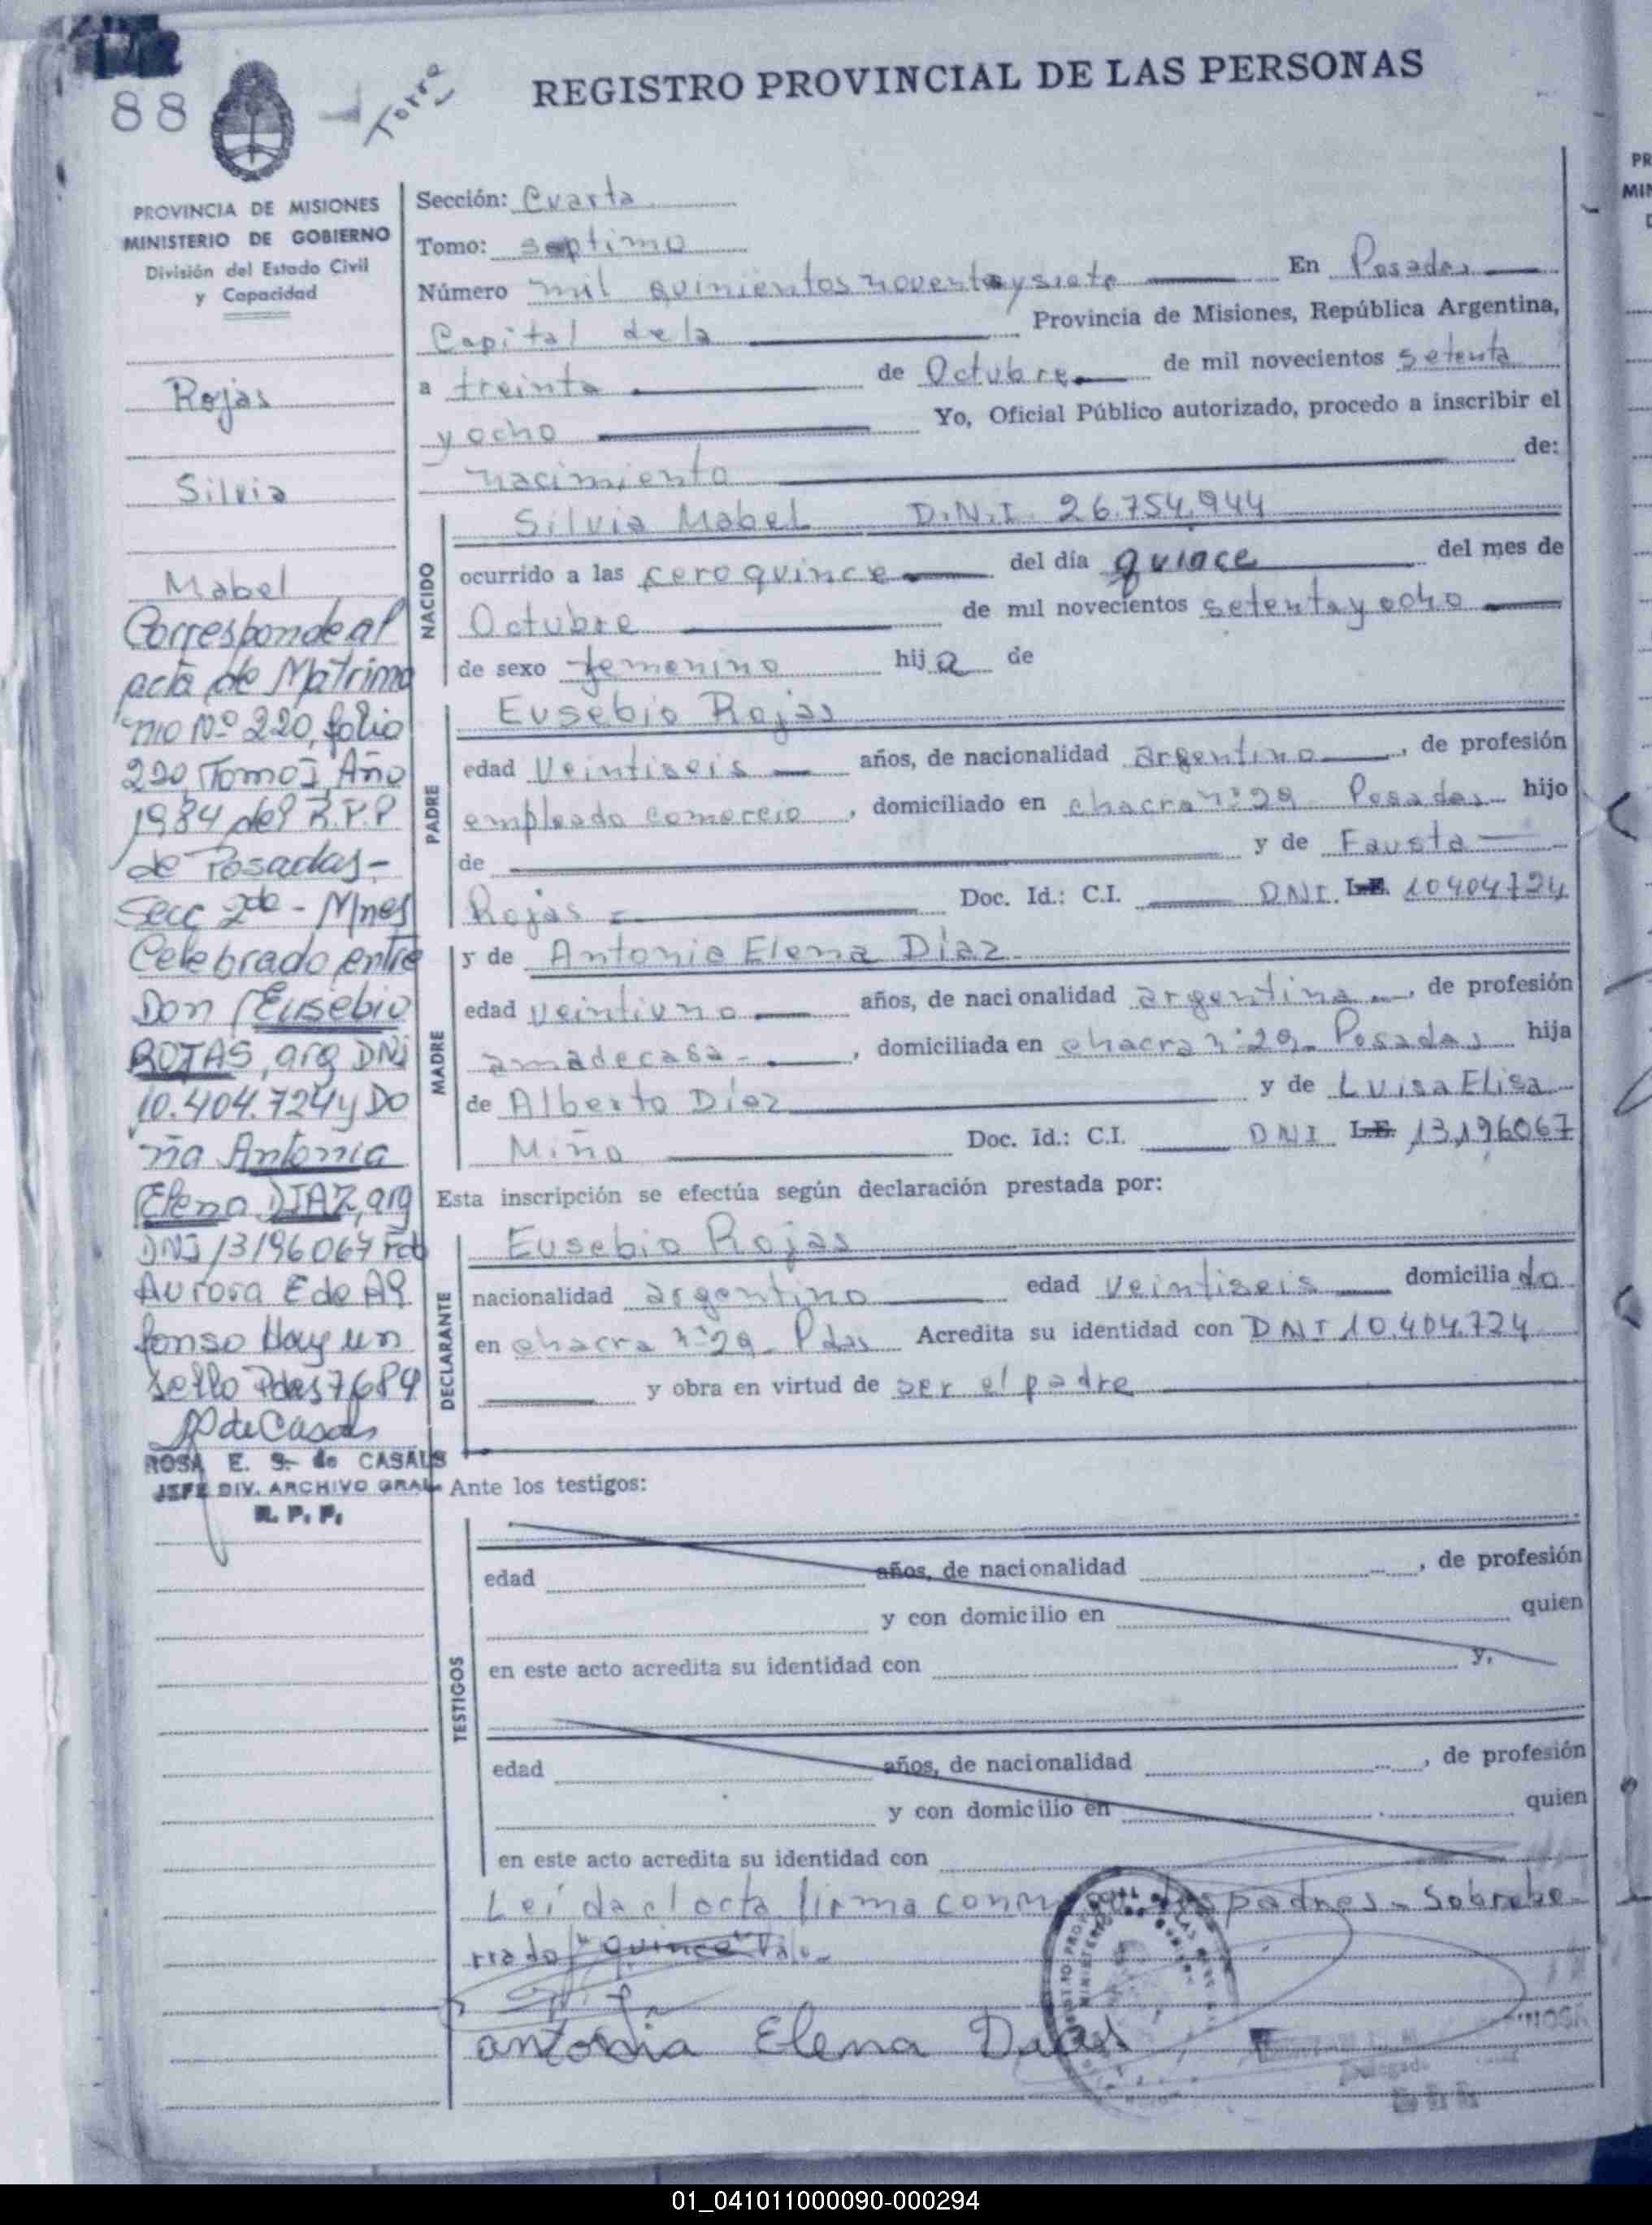 88
Torre
REGISTRO PROVINCIAL DE LAS PERSONAS
PROVINCIA DE MISIONES
MINISTERIO DE GOBIERNO
División del Estado Civil
y Capacidad
Rojas
Silvia
Mabel
Corresponde al
acta de Matrimo
nio Nº 220, folio
220, Tomo I, Año
1984 del R.P.P
de Posadas-
Secc 2da - Mnes
Celebrado entre
Don Eusebio
ROJAS, arg DNI
10.404.724 y Do
ña Antonia
Elena DIAZ, arg
DNI 13196067 Fdo
Aurora E de Al
fonso Hay un
sello Pdas 7,684
ROSA E. S. de CASALS
JEFE DIV. ARCHIVO GRAL
R. P. P.
Sección: Cuarta
Tomo: septimo
Número mil quinientos noventa y siete En Posadas
Capital de la Provincia de Misiones, República Argentina,
a treinta de Octubre de mil novecientos setenta
y ocho Yo, Oficial Público autorizado, procedo a inscribir el
nacimiento de:
NACIDO
Silvia Mabel D.N.I. 26.754.944
ocurrido a las cero quince del día quince del mes de
Octubre de mil novecientos setenta y ocho
de sexo femenino hija de
PADRE
Eusebio Rojas
edad Veintiseis años, de nacionalidad argentino, de profesión
empleado comercio, domiciliado en chacra nº 29 Posadas hijo
de y de Fausta
Rojas Doc. Id.: C.I. DNI. L.E. 10404724
MADRE
y de Antonia Elena Díaz
edad veintiuno años, de nacionalidad argentina, de profesión
ama de casa, domiciliada en chacra nº 29 Posadas hija
de Alberto Díaz y de Luisa Elisa
Miño Doc. Id.: C.I. DNI L.E. 13,196067
Esta inscripción se efectúa según declaración prestada por:
DECLARANTE
Eusebio Rojas
nacionalidad argentino edad veintiseis domiciliado
en chacra nº 29 Pdas Acredita su identidad con DNI 10.404.724
y obra en virtud de ser el padre
Ante los testigos:
TESTIGOS
edad años, de nacionalidad , de profesión
y con domicilio en quien
en este acto acredita su identidad con y,
edad años, de nacionalidad , de profesión
y con domicilio en quien
en este acto acredita su identidad con
Leída el acta firma los padres - Sobrebo
rrado "quince" Vale
antonia Elena Diaz
01_041011000090-000294